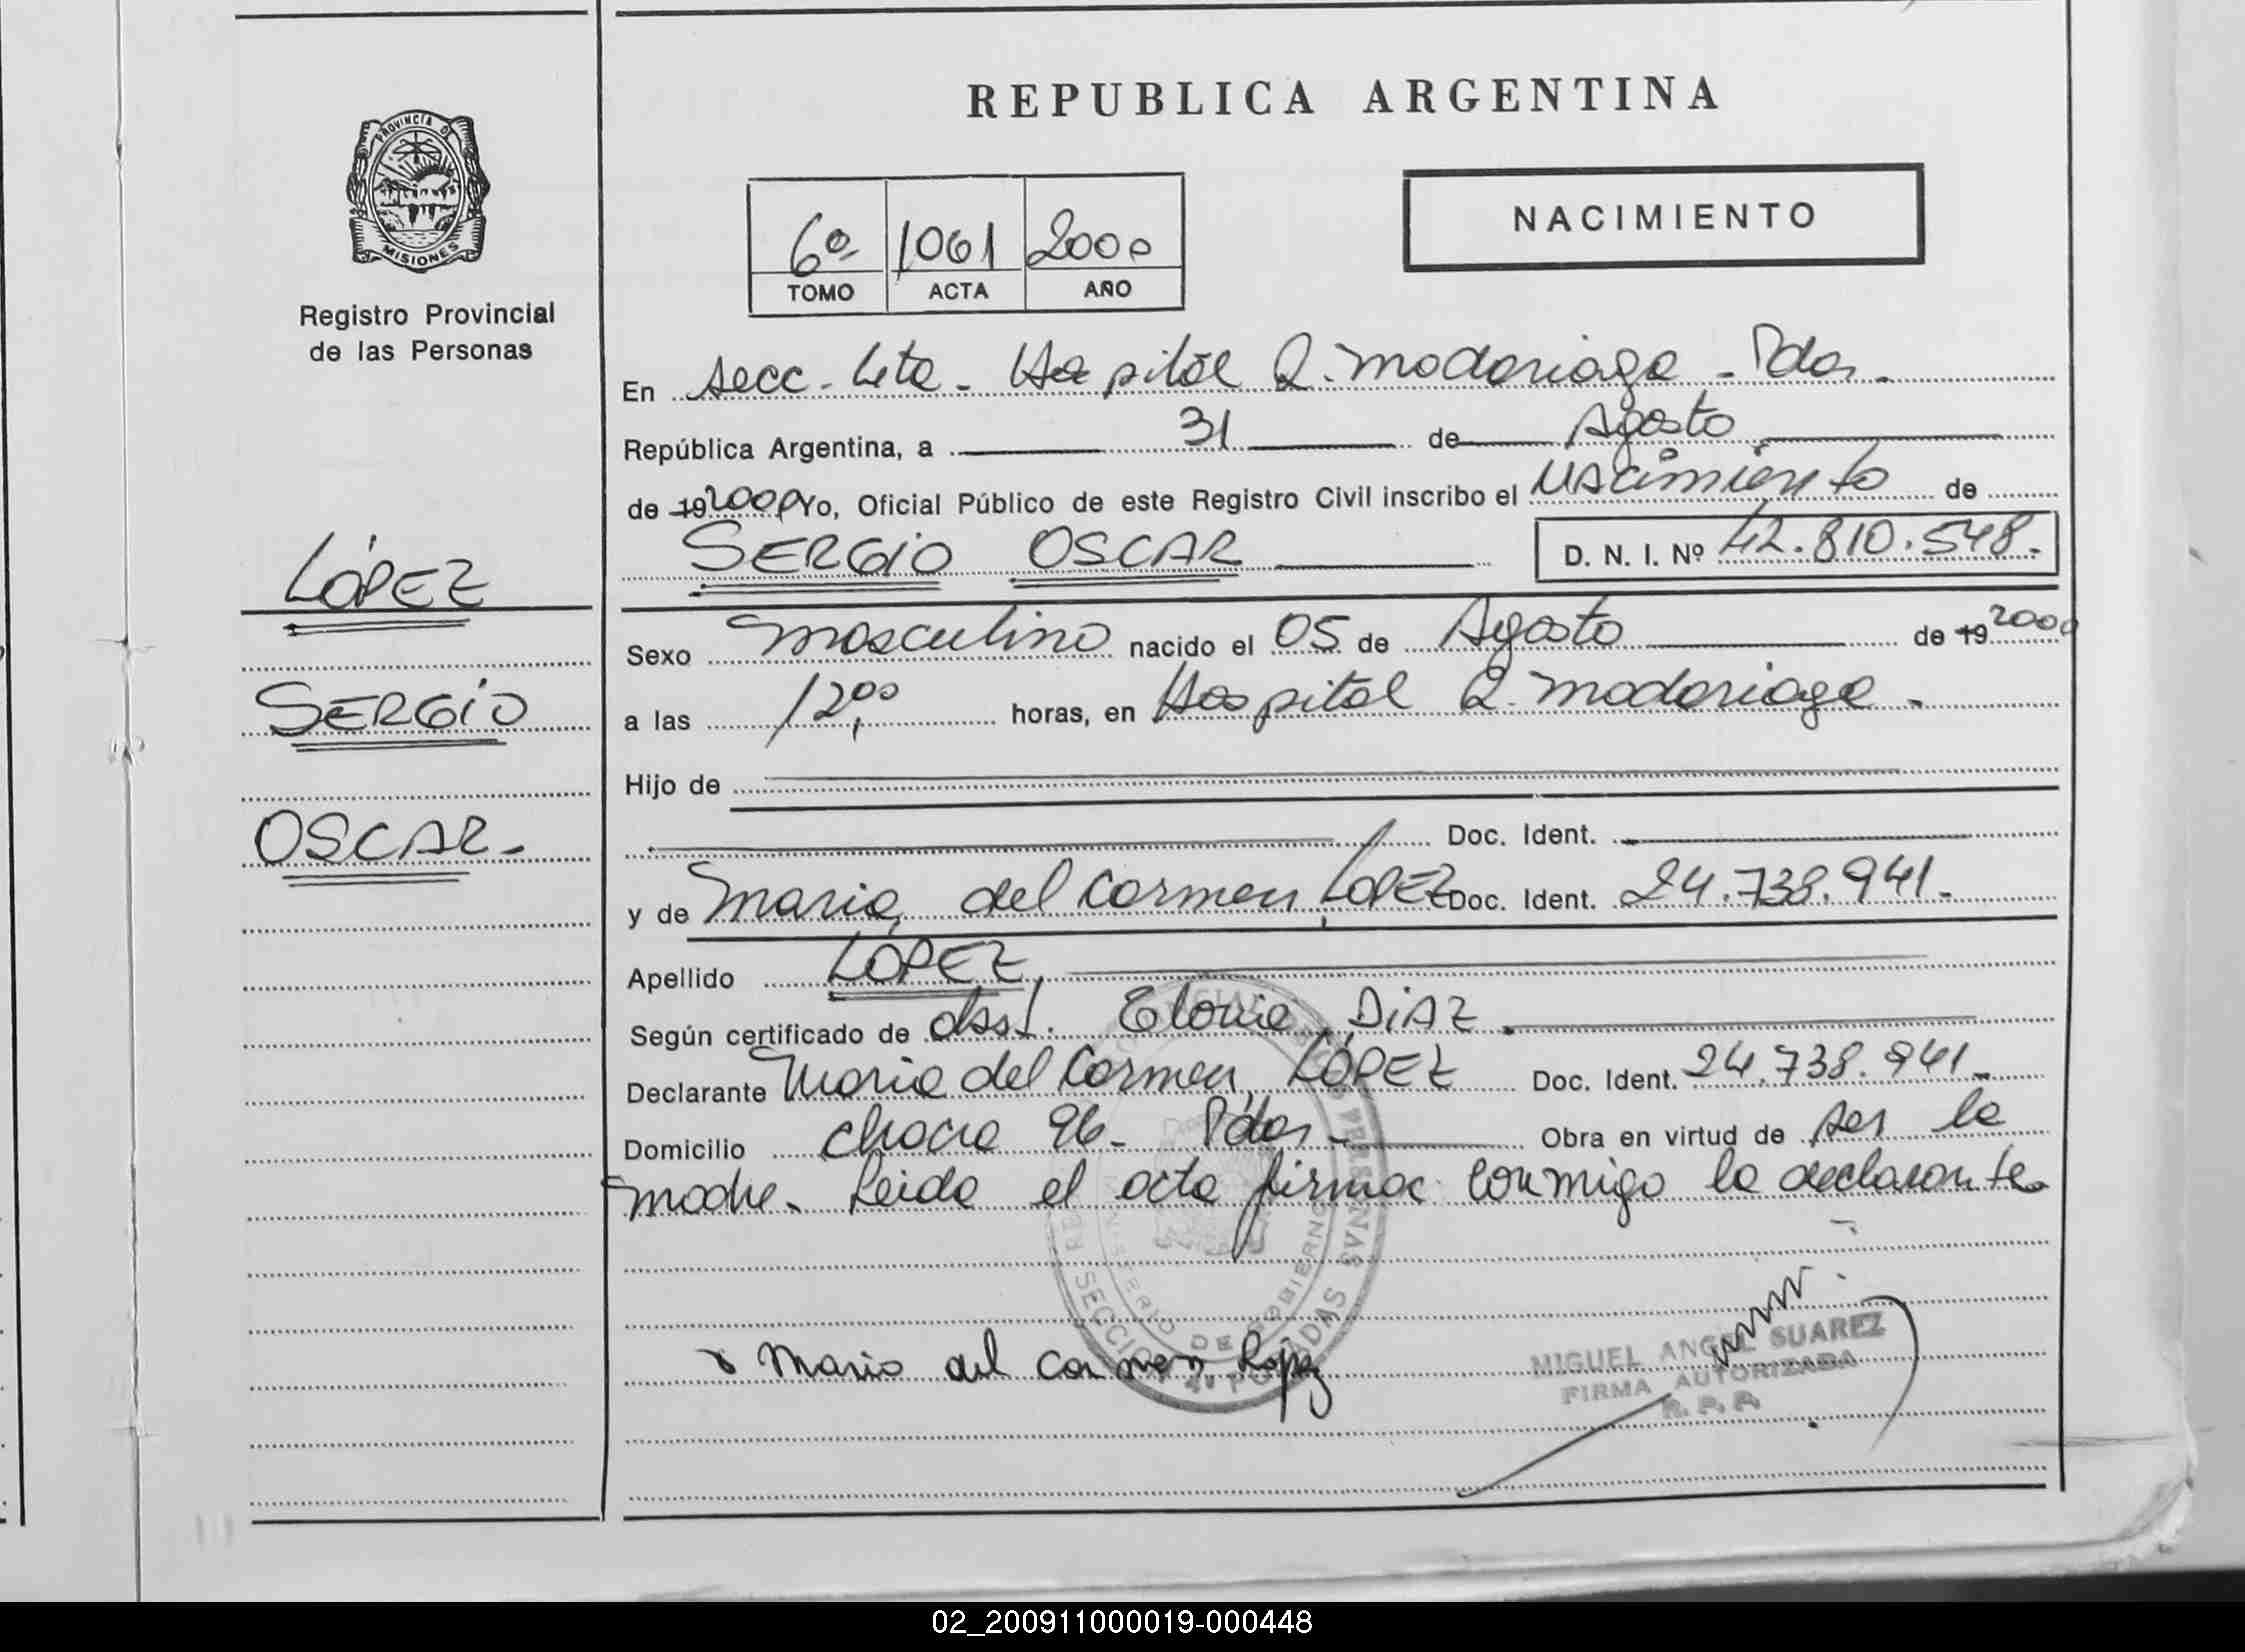 REPUBLICA ARGENTINA
PROVINCIA D
MISIONES
Registro Provincial
de las Personas
NACIMIENTO
6º 1061 2000
TOMO ACTA AÑO
En secc. 4ta. Hospital R. Madariaga - Pdas.
República Argentina, a 31 de Agosto
de 19 2000 Yo, Oficial Público de este Registro Civil inscribo el Nacimiento de
SERGIO OSCAR D. N. I. Nº 42.810.548.
LÓPEZ
SERGIO
OSCAR.
Sexo masculino nacido el 05 de Agosto de 19 2000
a las 12,00 horas, en Hospital R. Madariaga.
Hijo de
Doc. Ident.
y de Maria del Carmen LOPEZ Doc. Ident. 24.738.941.
Apellido LÓPEZ
Según certificado de obst. DIAZ.
Declarante Maria del Carmen LÓPEZ Doc. Ident. 24.738.941.
Domicilio chacra 96 - Pdas - Obra en virtud de ser la
madre. Leida el acta firma conmigo la declarante.
Maria del Carmen Lopez
MIGUEL ANGEL SUAREZ
FIRMA AUTORIZADA
R. P. P.
02_200911000019-000448